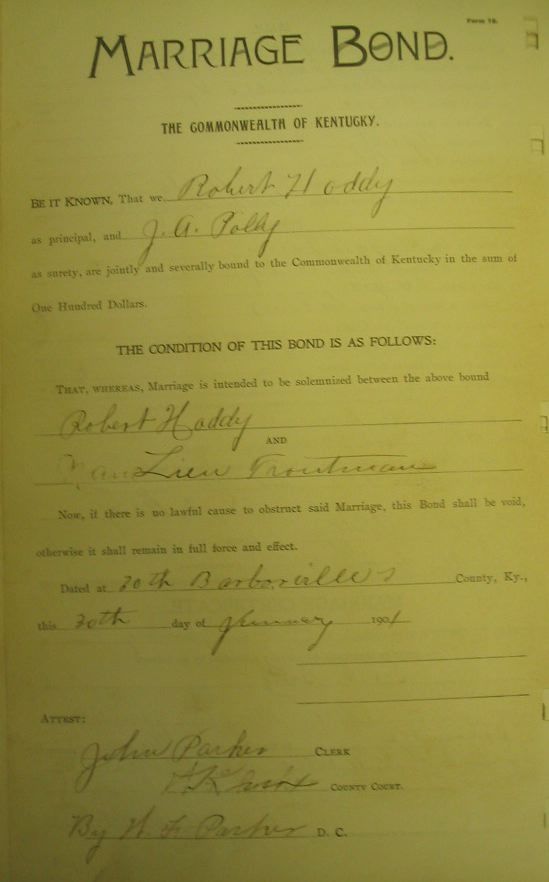 Form 78.
MARRIAGE BOND.
THE COMMONWEALTH OF KENTUCKY.
BE IT KNOWN, That we Robert Hoddy
as principal, and J. A. Polly
as surety, are jointly and severally bound to the Commonwealth of Kentucky in the sum of
One Hundred Dollars.
THE CONDITION OF THIS BOND IS AS FOLLOWS:
THAT, WHEREAS, Marriage is intended to be solemnized between the above bound
Robert Hoddy
AND
Troutman
Now, if there is no lawful cause to obstruct said Marriage, this Bond shall be void,
otherwise it shall remain in full force and effect.
Dated at 30th Barborville County, Ky.,
this 30th day of January 1901
ATTEST:
John Parker CLERK
COUNTY COURT.
By W. F. Parker D. C.